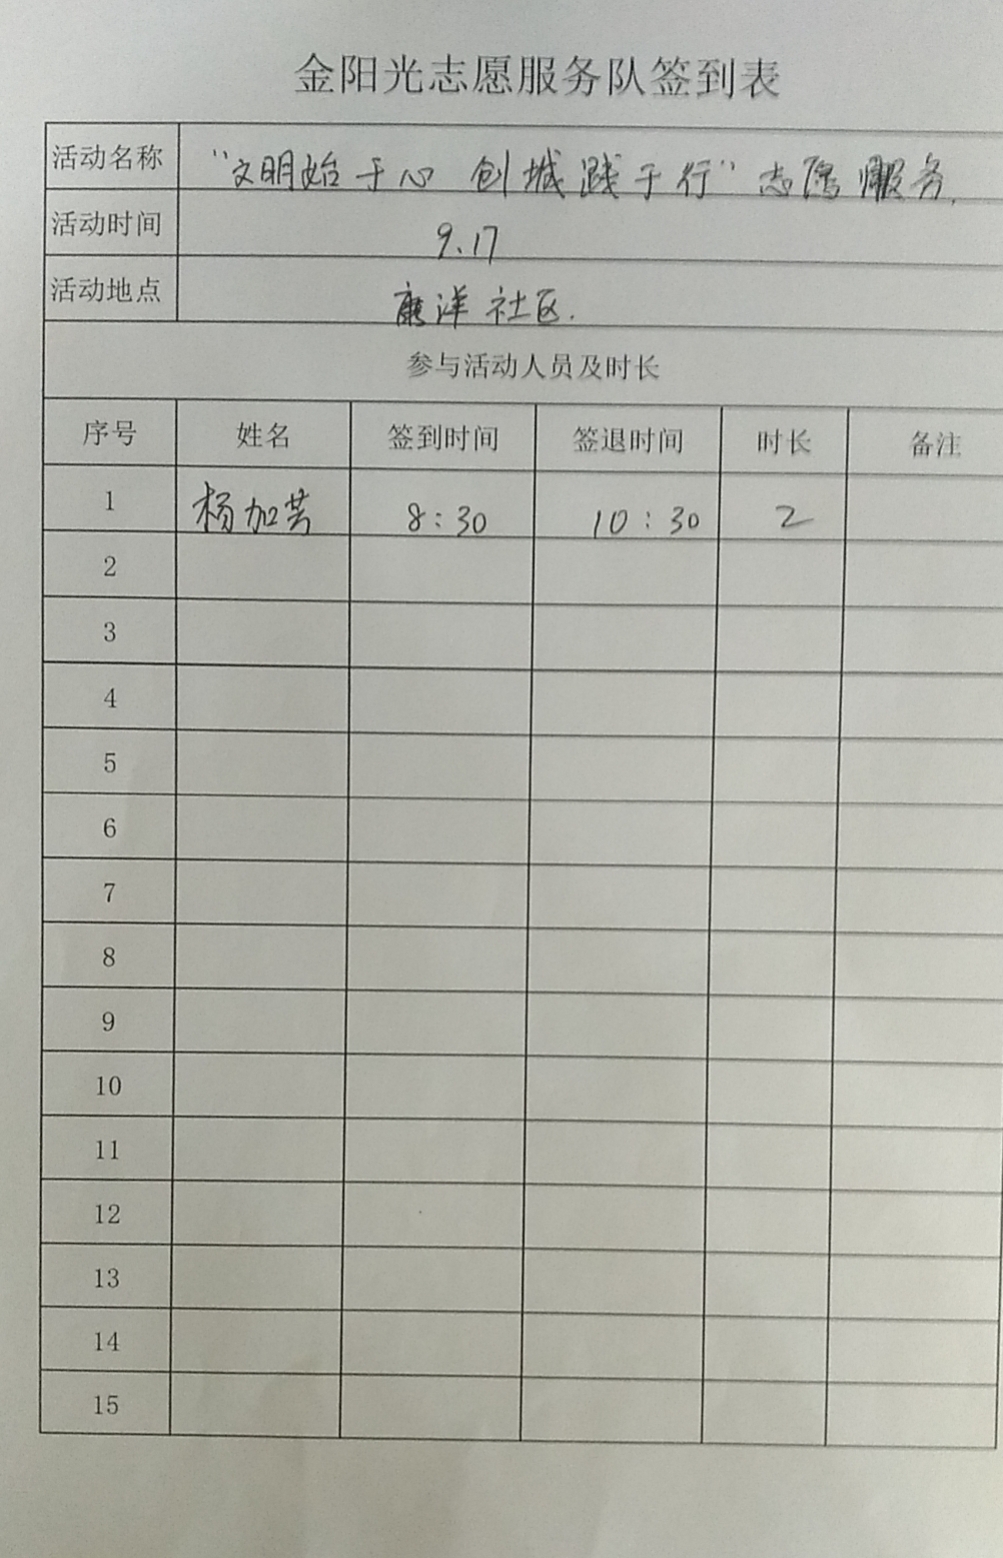 金阳光志愿服务队签到表
活动名称 “文明始于心 创城践于行”志愿服务.
活动时间 9.17
活动地点 康洋社区.
参与活动人员及时长
序号 姓名 签到时间 签退时间 时长 备注
1 杨加芸 8:30 10:30 2
2
3
4
5
6
7
8
9
10
11
12
13
14
15